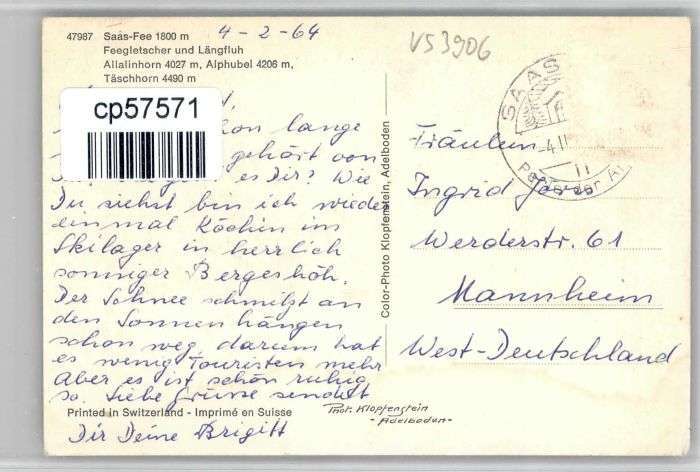 47987 Saas-Fee 1800 m
Feegletscher und Längfluh
Allalinhorn 4027 m, Alphubel 4206 m,
Täschhorn 4490 m
4-2-64
VS3906
cp57571
lange
gehört von
es Dir? Wie
Du siehst bin ich wieder
einmal Köchin im
Skilager in herrlich
sonniger Bergeshöh.
Der Schnee schmilzt an
den Sonnenhängen
schon weg, darum hat
es wenig Touristen mehr
Aber es ist schön ruhig
so. Liebe Grüsse sendet
Dir Deine Brigitt
Printed in Switzerland - Imprimé en Suisse
Phot. Klopfenstein
- Adelboden -
Color-Photo Klopfenstein, Adelboden
SAAS
Perle der
Fräulein
Ingrid
Werderstr. 61
Mannheim
West-Deutschland